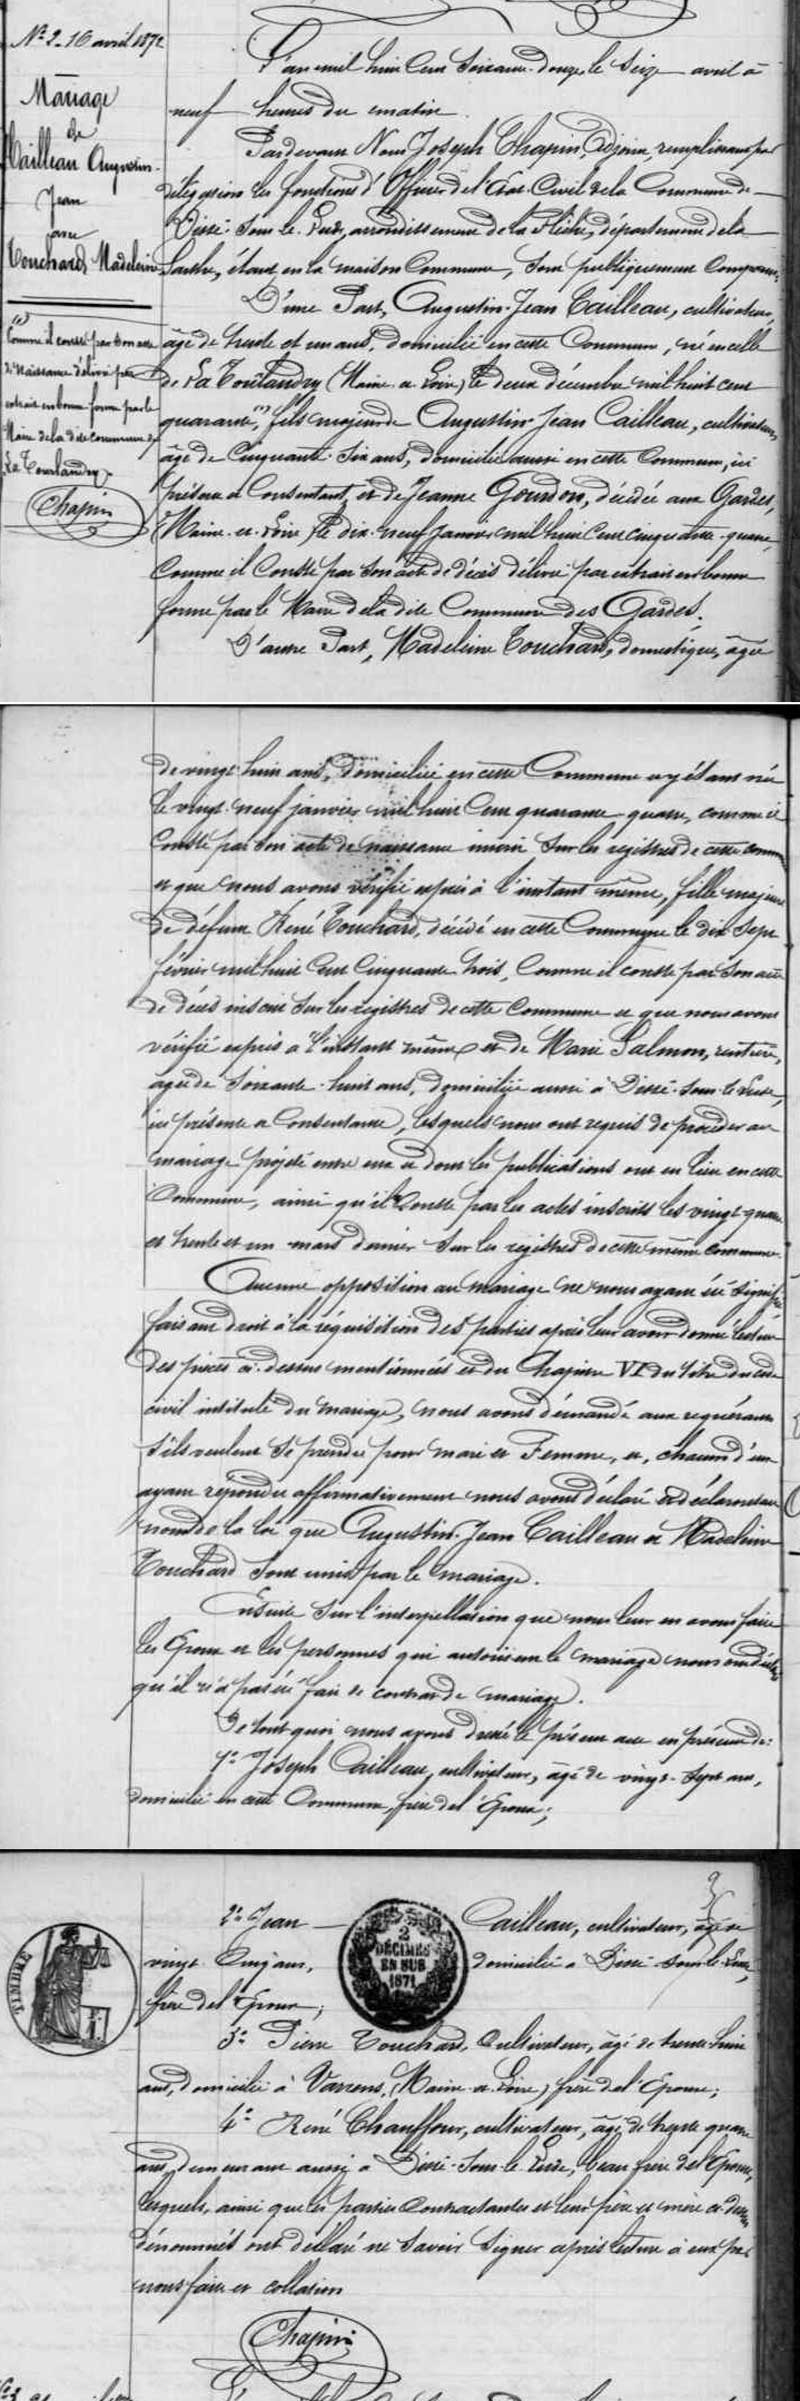 N° 2 - 16 avril 1872
Mariage
de
Cailleau Augustin-
Jean
avec
Touchard Madeleine
(1)
Comme il conste par son acte
de naissance délivré par
extrait en bonne forme par le
Maire de la dite commune de
La Tourlandry
Chapin
L'an mil huit Cent Soixante-douze, le Seize avril à
neuf heures du matin.
Pardevant Nous Joseph Chapin, Adjoint, remplissant par
délégation les fonctions d'Officier de l'État-Civil de la Commune de
Dissé-Sous-le-Lude, arrondissement de la Flèche, département de la
Sarthe, étant en la maison Commune, Sont publiquement Comparus:
D'une Part, Augustin-Jean Cailleau, cultivateur,
âgé de trente et un ans, domicilié en cette Commune, né en celle
de La Tourlandry (Maine-et-Loire) le deux décembre mil huit cent
quarante, (1) fils majeur de Augustin-Jean Cailleau, cultivateur,
âgé de Cinquante-Six ans, domicilié aussi en cette Commune, ici
présent et Consentant, et de Jeanne Gourdon, décédée aux Gardes,
(Maine-et-Loire) le dix-neuf Janvier mil huit Cent cinquante-quatre,
Comme il Conste par Son acte de décès délivré par extrait en bonne
forme par le Maire de la dite Commune des Gardes.
D'autre Part, Madeleine Touchard, domestique, âgée
de vingt-huit ans, domiciliée en cette Commune et y étant née
le vingt-neuf janvier mil huit Cent quarante-quatre, comme il
Conste par Son acte de naissance inscrit Sur les registres de cette commune
et que nous avons vérifié exprès à l'instant même, fille majeure
de défunt René Touchard, décédé en cette Commune le dix Sept
février mil huit Cent Cinquante trois, Comme il conste par Son acte
de décès inscrit Sur les registres de cette Commune et que nous avons
vérifié exprès à l'instant même et de Marie Salmon, rentière,
âgée de Soixante-huit ans, domiciliée aussi à Dissé-Sous-le-Lude,
ici présente et Consentante, lesquels nous ont requis de procéder au
mariage projeté entre eux et dont les publications ont eu lieu en cette
Commune, ainsi qu'il Conste par les actes inscrits les vingt-quatre
et trente et un mars dernier Sur les registres de cette même commune.
Aucune opposition au mariage ne nous ayant été Signifiée
faisant droit à la réquisition des parties après leur avoir donné lecture
des pièces ci-dessus mentionnées et du Chapitre VI du titre du code
civil intitulé du mariage, nous avons demandé aux requérants
S'ils veulent Se prendre pour mari et Femme, et, chacun d'eux
ayant répondu affirmativement nous avons déclaré et déclarons au
nom de la loi que Augustin-Jean Cailleau et Madeleine
Touchard Sont unis par le mariage.
Ensuite Sur l'interpellation que nous leur en avons faite
les Époux et les personnes qui autorisent le mariage nous ont déclaré
qu'il n'a pas été fait de contrat de mariage.
De tout quoi nous avons dressé le présent acte en présence de:
1° Joseph Cailleau, cultivateur, âgé de vingt-Sept ans,
domicilié en cette Commune, frère de l'Époux;
9
2° Jean Cailleau, cultivateur, âgé de
vingt Cinq ans, domicilié à Dissé-Sous-le-Lude,
frère de l'Époux;
TIMBRE
2
DÉCIMES
EN SUS
1871
3° Pierre Touchard, Cultivateur, âgé de trente-huit
ans, domicilié à Varrens, (Maine-et-Loire) frère de l'Épouse;
4° René Chauffour, cultivateur, âgé de trente quatre
ans, demeurant aussi à Dissé-Sous-le-Lude, beau frère de l'Épouse,
lesquels, ainsi que les parties Contractantes et leur père et mère ci-dessus
dénommés ont déclaré ne Savoir Signer après lecture à eux par
nous faite et collation
Chapin